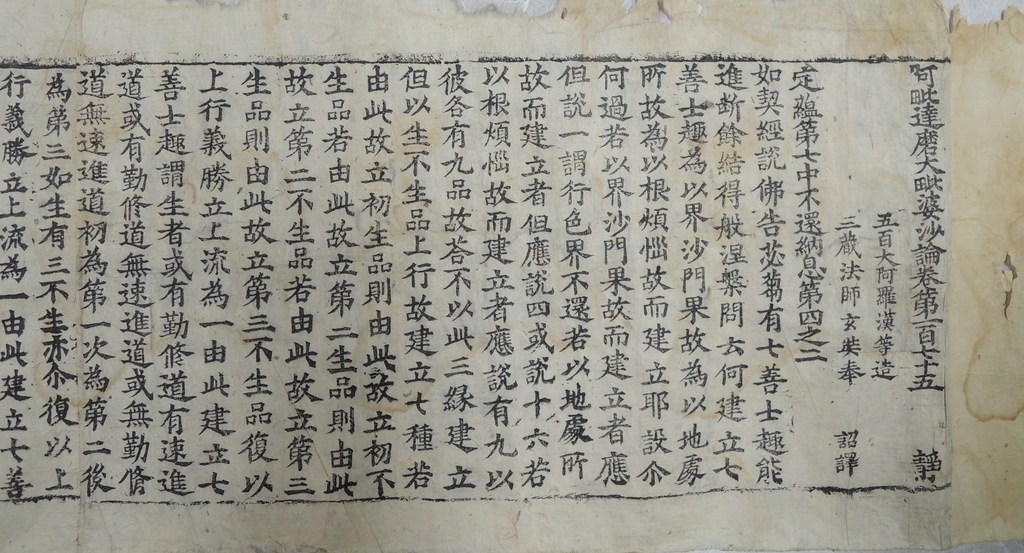 阿毗達磨大毗婆沙論卷第一百七十五　靜
五百大阿羅漢等造
三藏法師玄奘奉　詔譯
定蘊第七中不還納息第四之二
如契經說佛告苾芻有七善士趣能
進斷餘結得般涅槃問云何建立七
善士趣為以界沙門果故為以地處
所故為以根煩惱故而建立耶設尒
何過若以界沙門果故而建立者應
但說一謂行色界不還若以地處所
故而建立者但應說四或說十六若
以根煩惱故而建立者應說有九以
彼各有九品故荅不以此三緣建立
但以生不生品上行故建立七種若
由此故立初生品則由此故立初不
生品若由此故立第二生品則由此
故立第二不生品若由此故立第三
生品則由此故立第三不生品復以
上行義勝立上流為一由此建立七
善士趣謂生者或有勤修道有速進
道或有勤修道無速進道或無勤脩
道無速進道初為第一次為第二後
為第三如生有三不生亦尒復以上
行義勝立上流為一由此建立七善